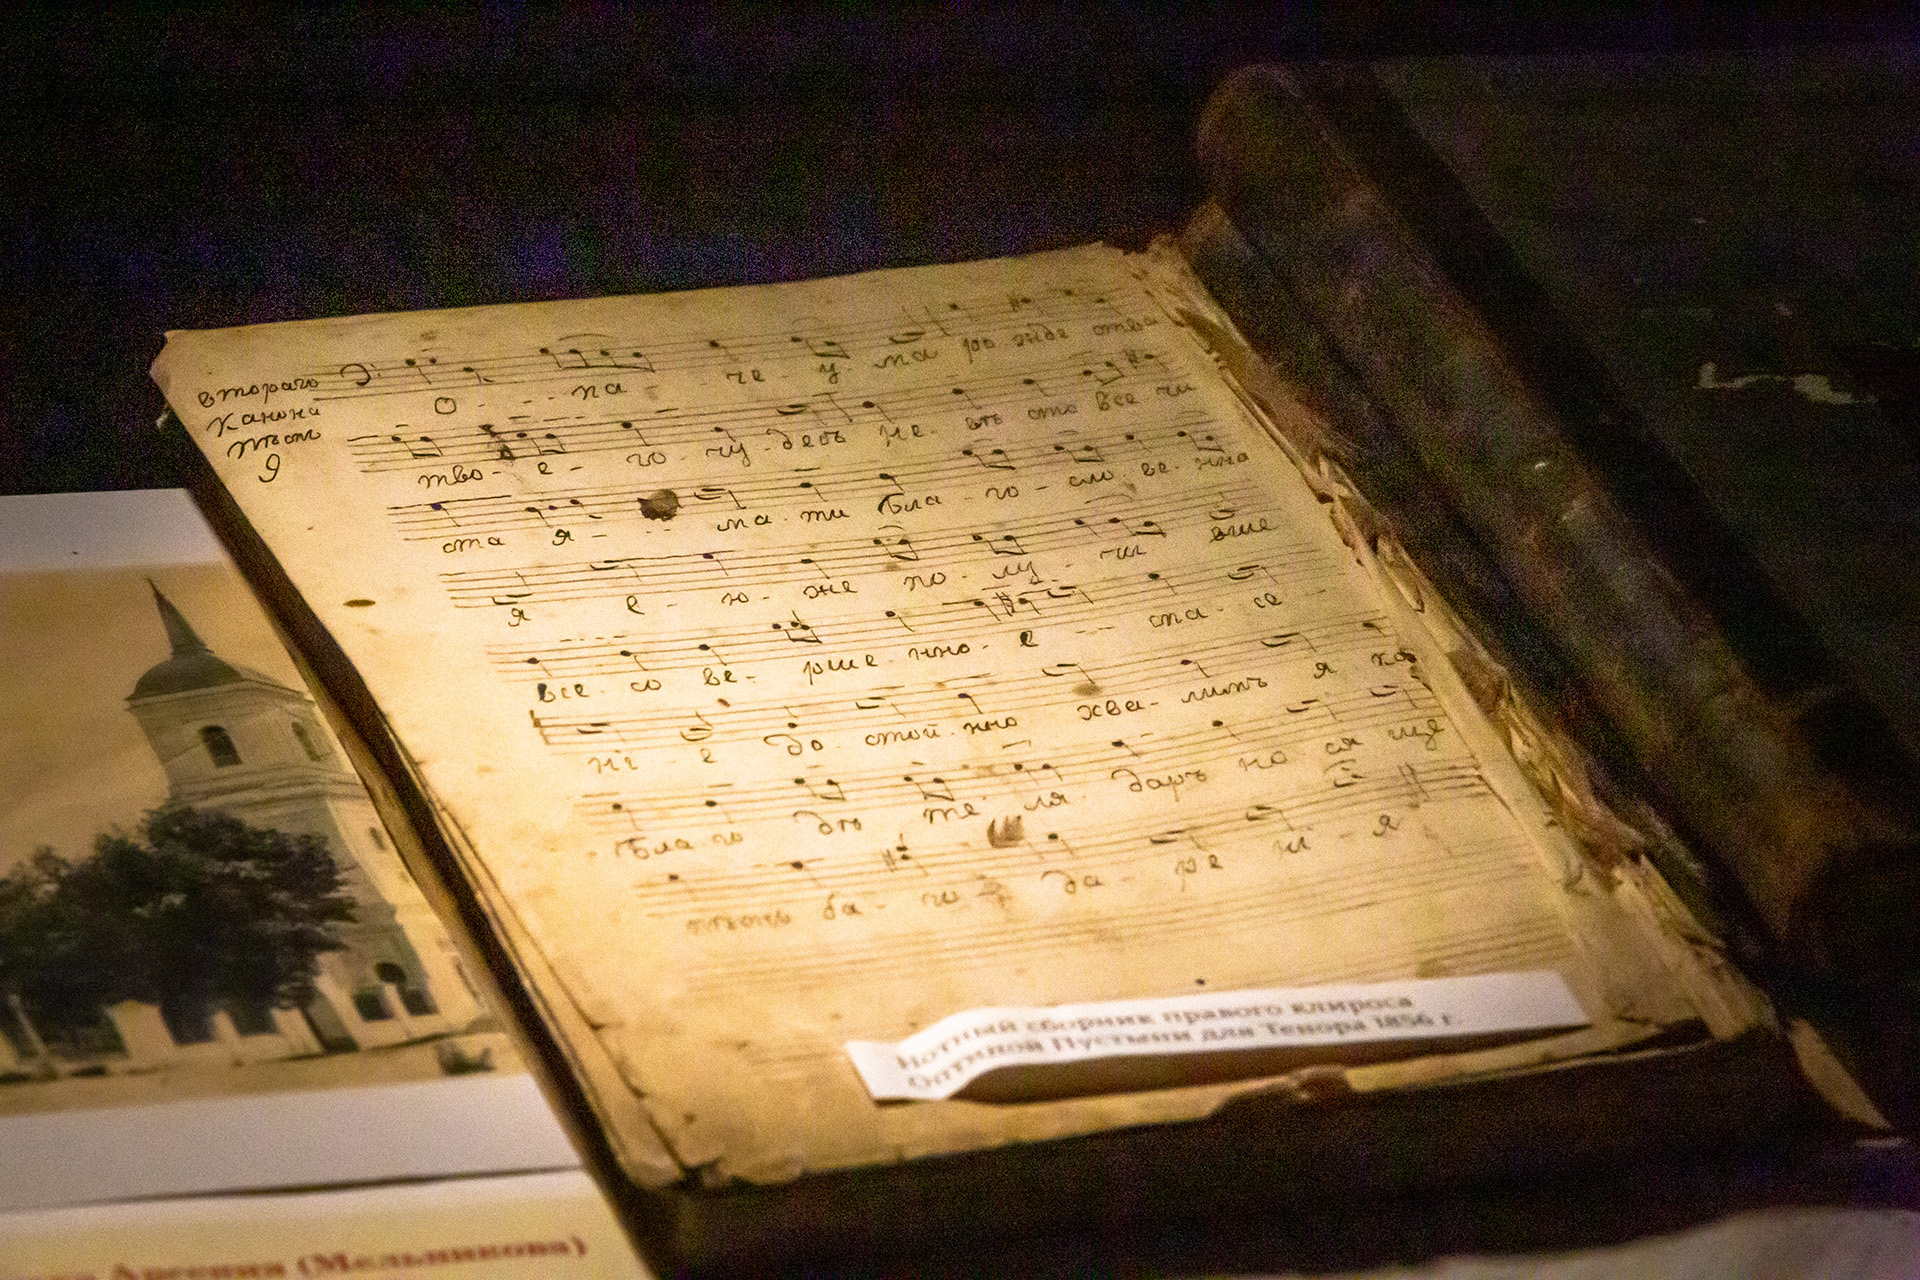 втораго
канона
пѣснь
9
О - - - па - - че у - ма ро жде ства
тво - е - го - чу - десъ не - вѣ сто все чи
ста я - - - ма - ти бла - го - сло - ве - нна
я е - ю - же по - лу - чи вше
все - со ве - рше - нно - е - - спа - се -
ні - е до - стой - нно хва - лимъ я ко
бла го дѣ те - ля - даръ но ся ще
пѣснь бла - го - да - ре ні - я
Нотный сборник правого клироса
Оптиной Пустыни для Тенора 1856 г.
Арсения (Мельникова)